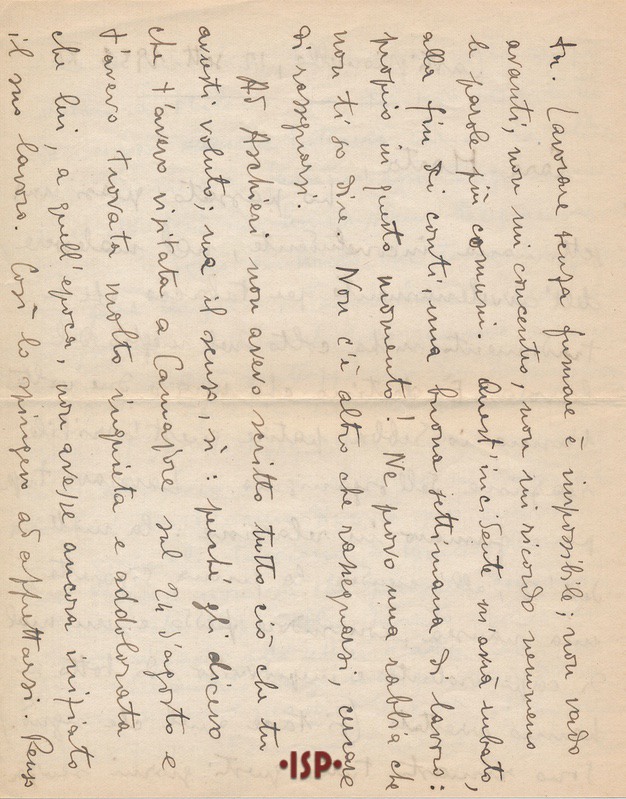 tu. Lavorare senza fumare è impossibile; non vado
avanti, non mi concentro, non mi ricordo nemmeno
le parole più comuni. Quest'incidente m'avrà rubato,
alla fin di conti, una buona settimana di lavoro:
proprio in questo momento! Ne provo una rabbia che
non ti so dire. Non c'è altro che rassegnarsi, cercare
di rassegnarsi.
Ad Aschieri non avevo scritto tutto ciò che tu
avresti voluto; ma il senso, sì: perché gli dicevo
che t'avevo visitata a Camajore sul 24 d'agosto e
t'avevo trovata molto inquieta e addolorata
che lui, a quell'epoca, non avesse ancora iniziato
il suo lavoro. Così lo spingevo ad affrettarsi. Penso
•ISP•